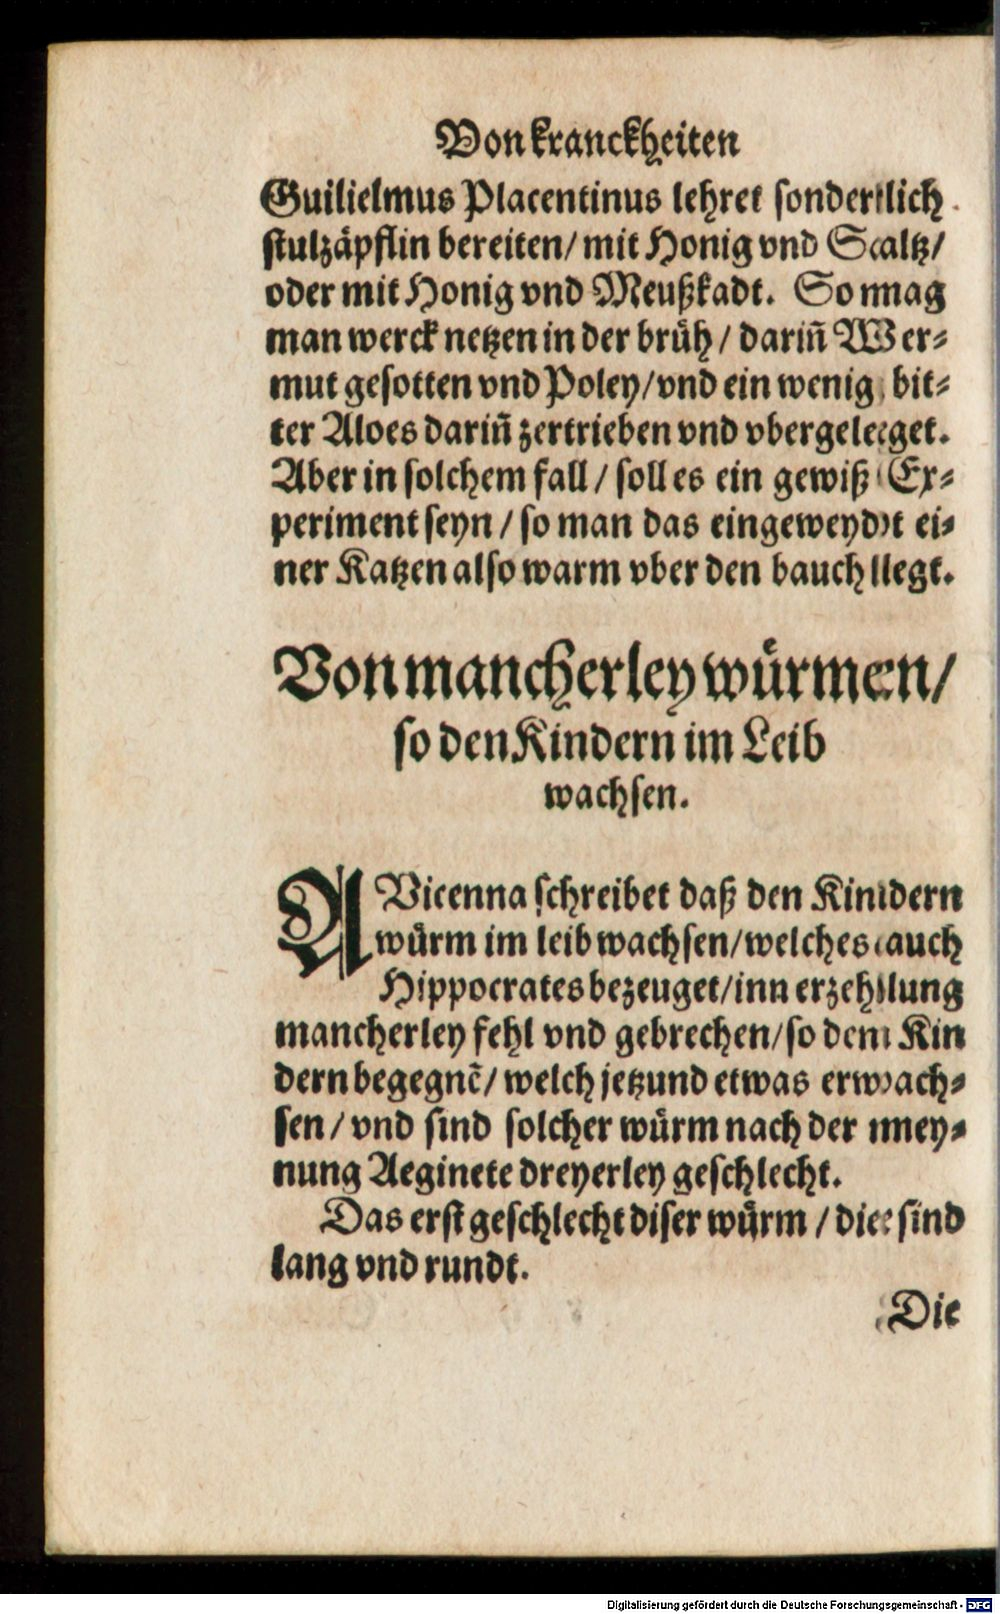 Von kranckheiten
Guilielmus Placentinus lehret sonderlich
stulzäpflin bereiten/ mit Honig vnd Saltz/
oder mit Honig vnd Meußkadt. So mag
man werck netzen in der brüh / dariñ Wer⸗
mut gesotten vnd Poley/ vnd ein wenig bit⸗
ter Aloes dariñ zertrieben vnd vbergeleget.
Aber in solchem fall / soll es ein gewiß Ex⸗
periment seyn / so man das eingeweydt ei⸗
ner Katzen also warm vber den bauch legt.
Von mancherley würmen/
so den Kindern im Leib
wachsen.
AVicenna schreibet daß den Kindern
würm im leib wachsen/welches auch
Hippocrates bezeuget/inn erzehlung
mancherley fehl vnd gebrechen/so dem Kin
dern begegnē/ welch jetzund etwas erwach⸗
sen / vnd sind solcher würm nach der mey⸗
nung Aeginete dreyerley geschlecht.
Das erst geschlecht diser würm / die sind
lang vnd rundt.
Die
Digitalisierung gefördert durch die Deutsche Forschungsgemeinschaft - DFG